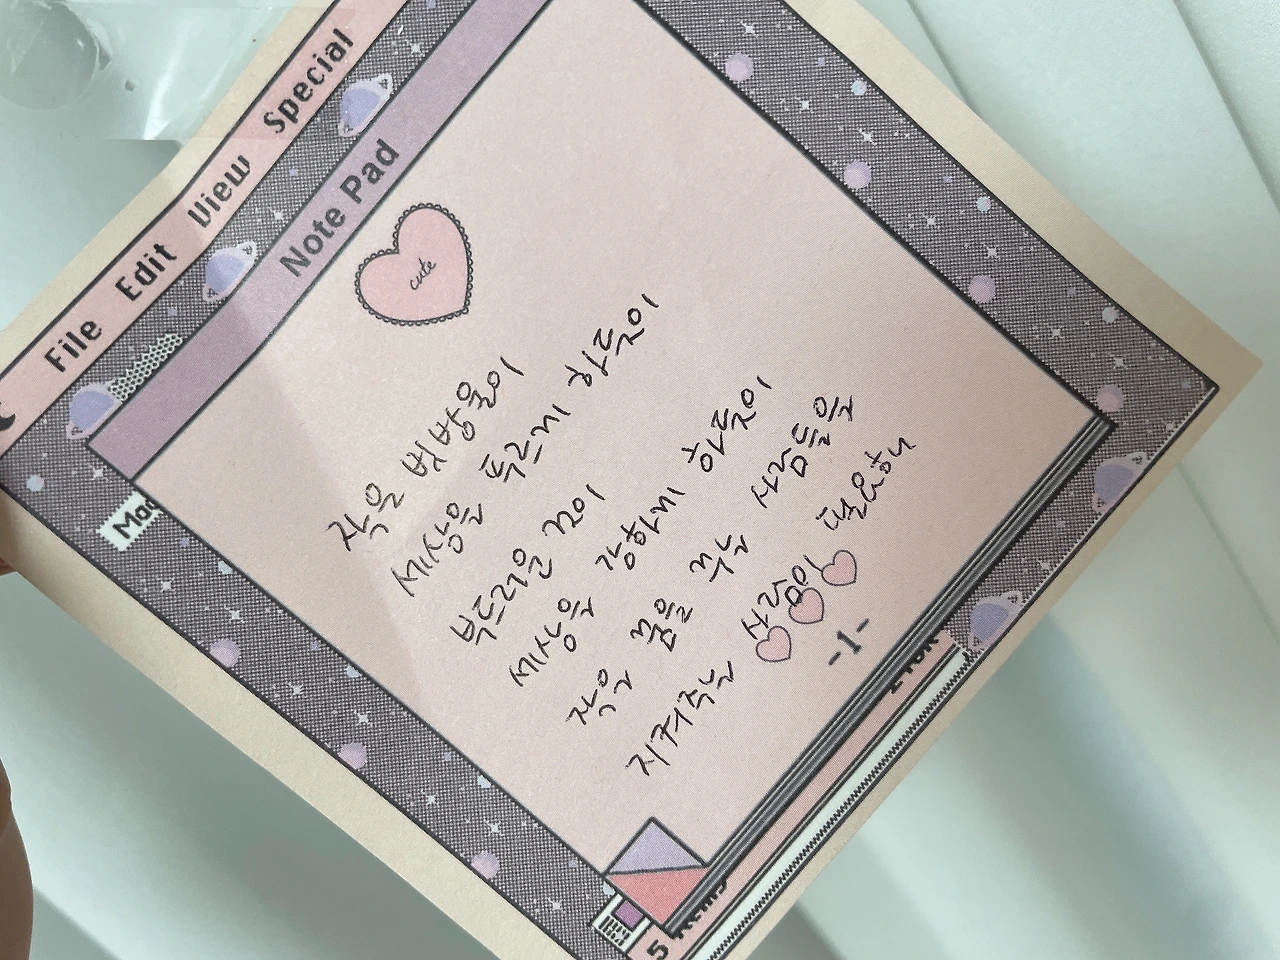 File Edit View Special
Note Pad
cute
작은 빗방울이
세상을 푸르게 하듯이
부드러운 것이
세상을 강하게 하듯이
작은 꿈을 꾸는 사람들을
지켜주는 사람이 필요해
-1-
Mac
5 items